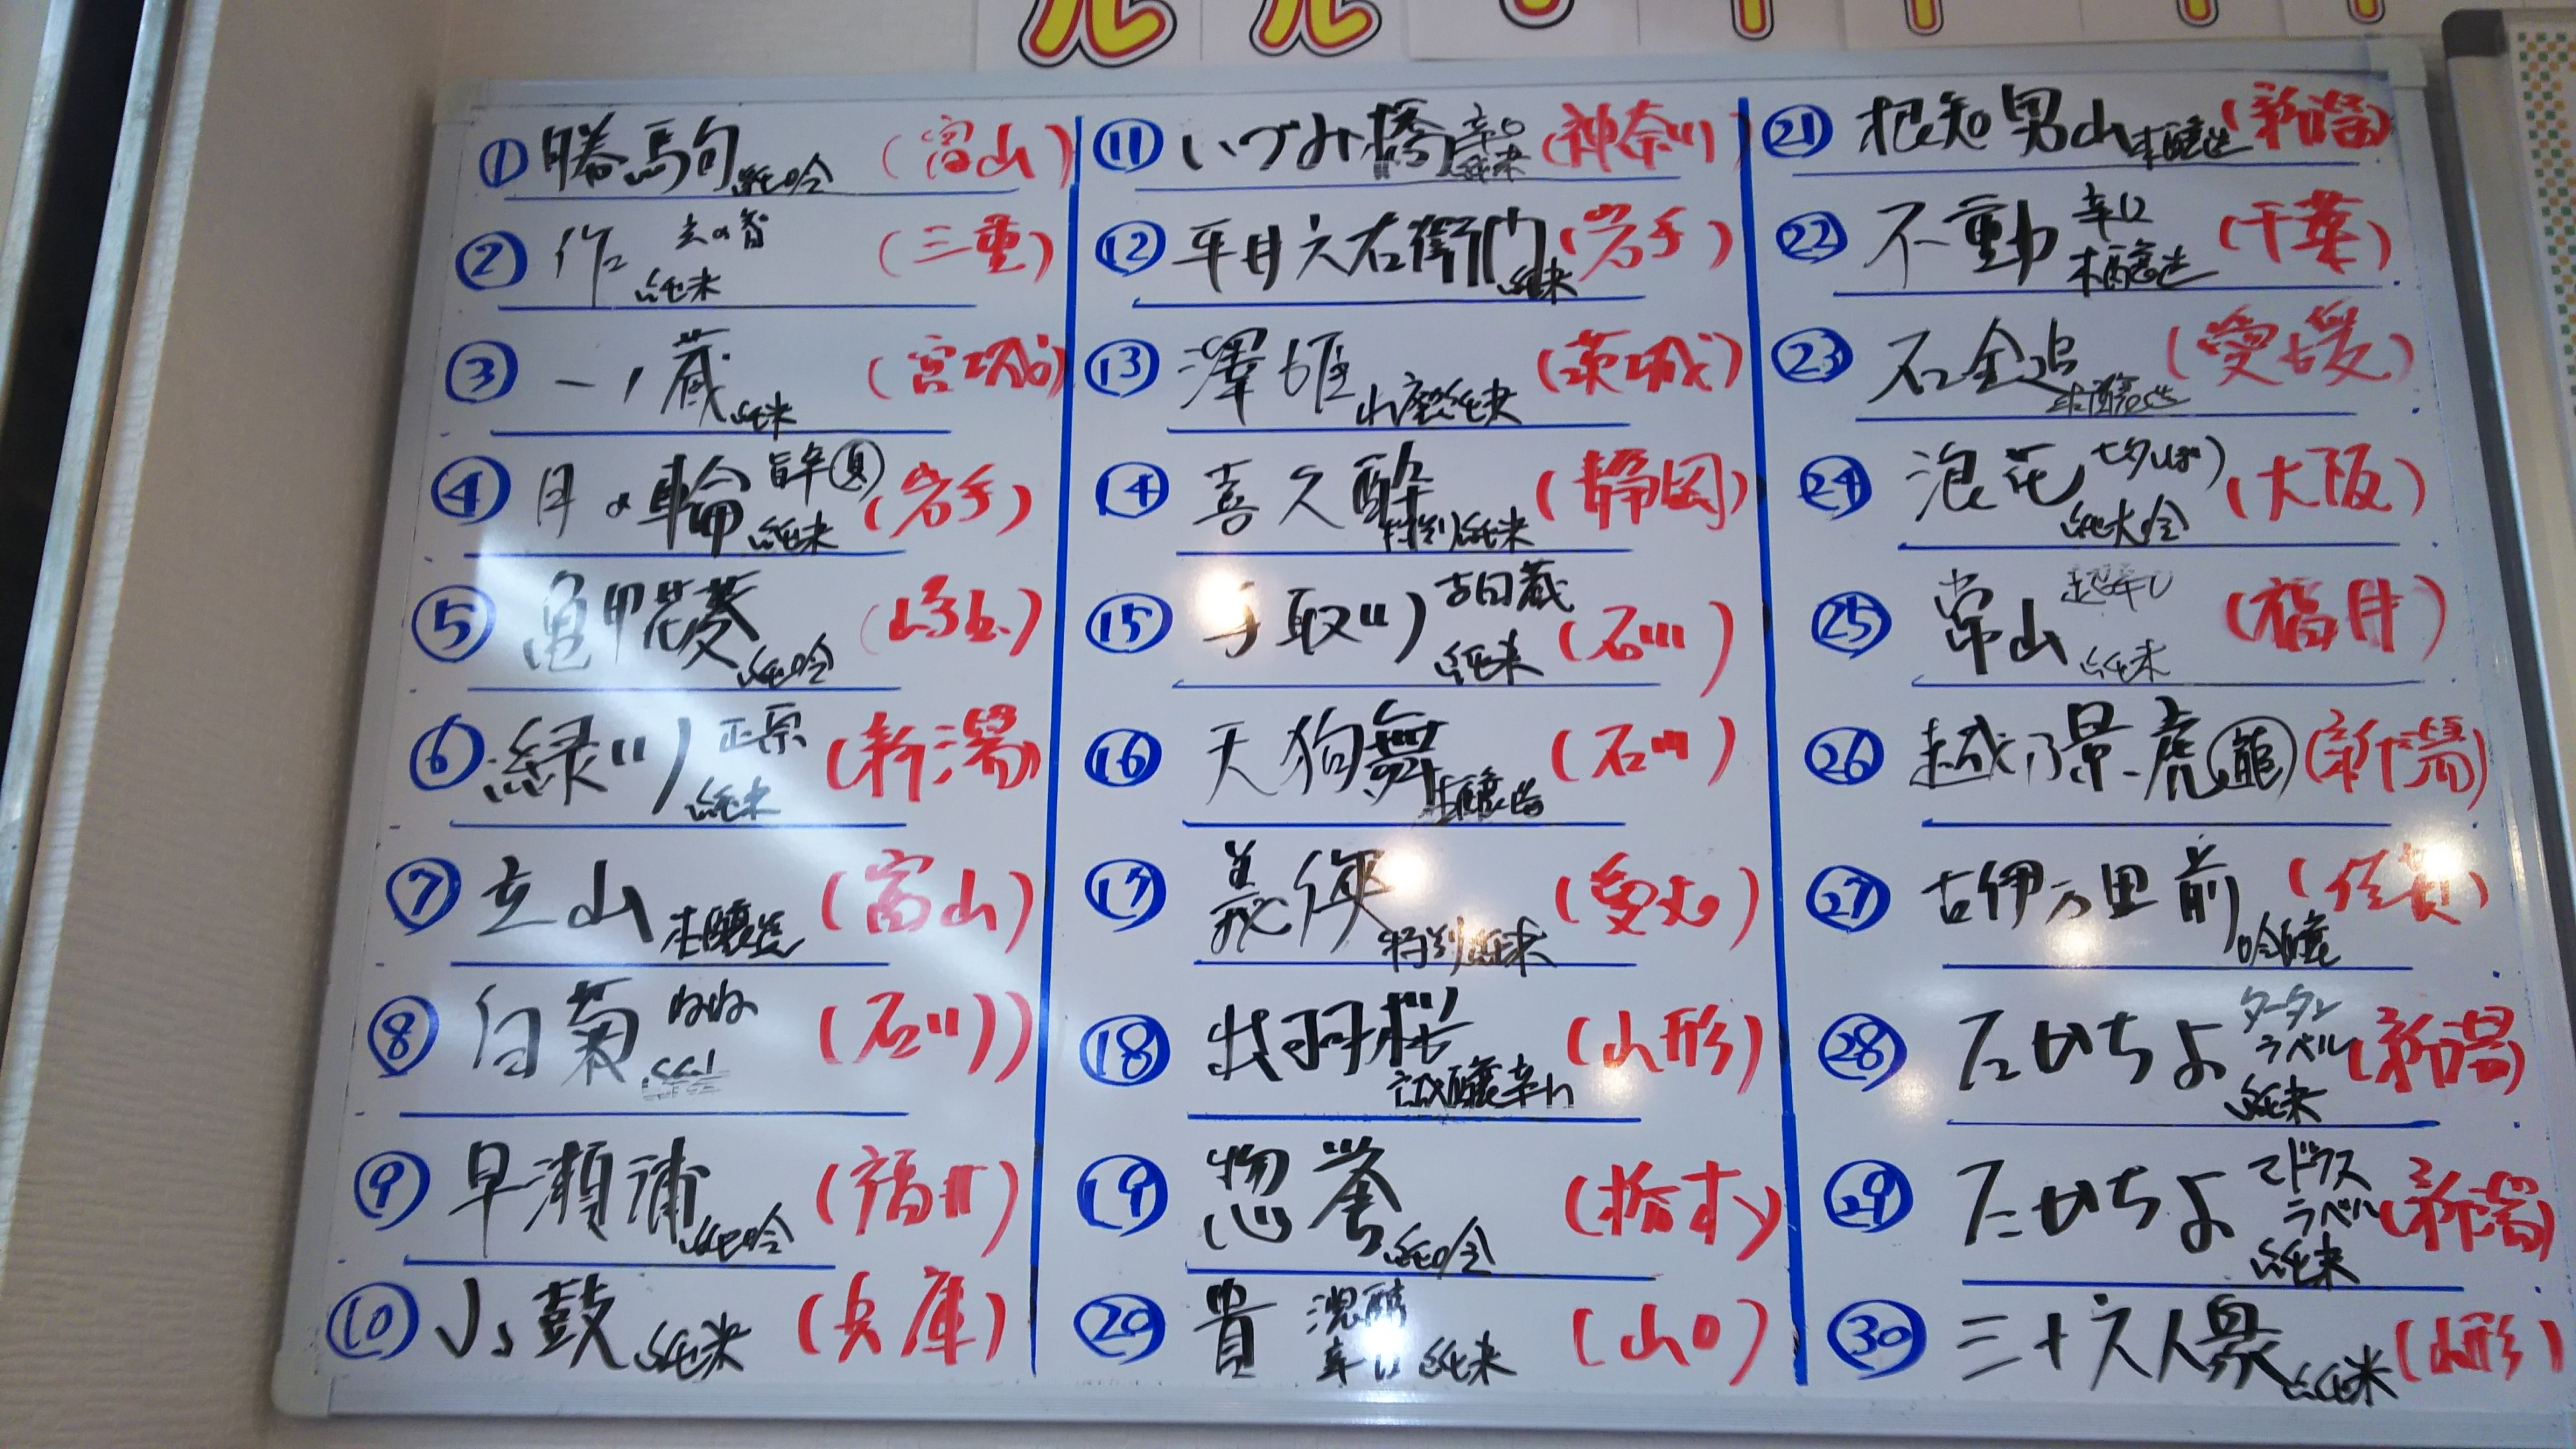 ① 勝駒 純吟 (富山)
② 作 玄の智 純米 (三重)
③ 一ノ蔵 純米 (宮城)
④ 月の輪 旨辛 純米 (岩手)
⑤ 亀甲花菱 純吟 (埼玉)
⑥ 緑川 正宗 純米 (新潟)
⑦ 立山 本醸造 (富山)
⑧ 白菊 (石川)
⑨ 早瀬浦 純吟 (福井)
⑩ 小鼓 純米 (兵庫)
⑪ いづみ橋 辛口 純米 (神奈川)
⑫ 平井六右衛門 純米 (岩手)
⑬ 澤姫 山廃純米 (茨城)
⑭ 喜久酔 特別純米 (静岡)
⑮ 手取川 吉田蔵 純米 (石川)
⑯ 天狗舞 (石川)
⑰ 義侠 特別純米 (愛知)
⑱ 出羽桜 誠醸辛口 (山形)
⑲ 惣誉 純吟 (栃木)
⑳ 貴 濃醇 辛口 純米 (山口)
㉑ 根知男山 本醸造 (新潟)
㉒ 不動 辛口 本醸造 (千葉)
㉓ 石鎚 (愛媛)
㉔ 浪花 純大吟 (大阪)
㉕ 常山 超辛口 純米 (福井)
㉖ 越乃景虎 龍 (新潟)
㉗ 古伊万里 前 吟醸 (佐賀)
㉘ たかちよ タータン ラベル 純米 (新潟)
㉙ たかちよ マドラス ラベル 純米 (新潟)
㉚ 三十六人衆 純米 (山形)